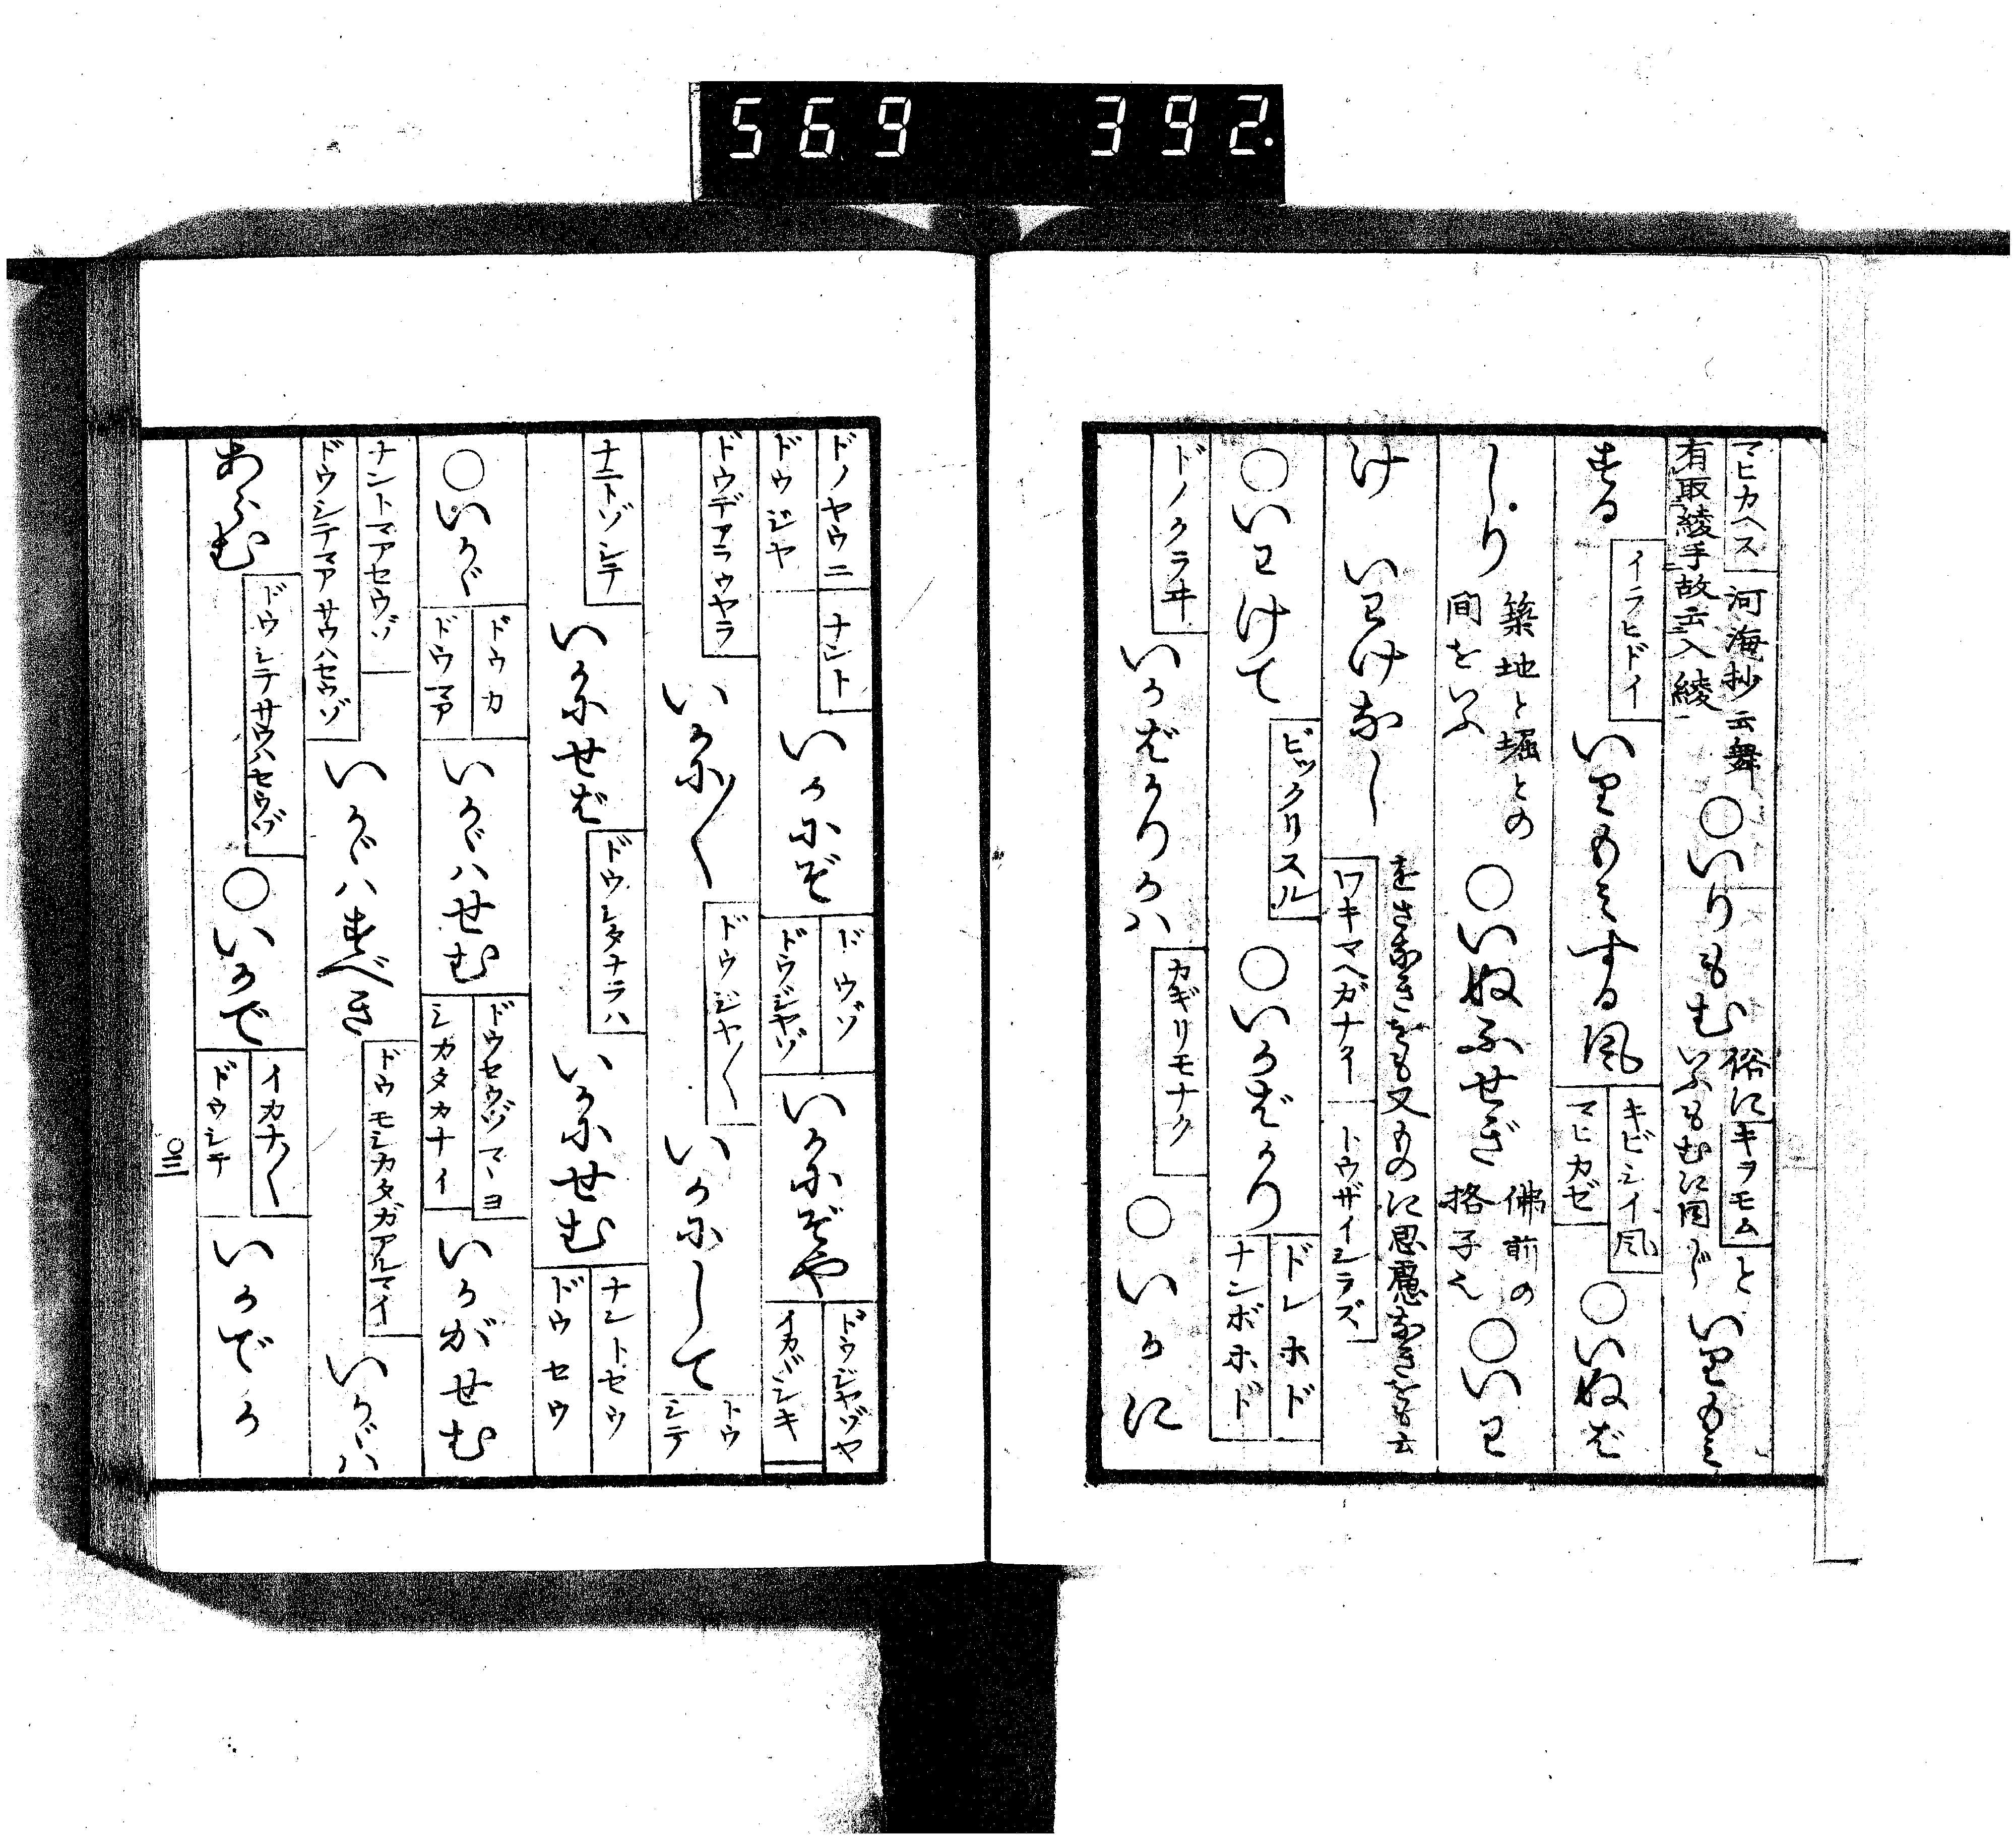 569 392.
マヒカヘス 河海抄云舞
有取綾手故云入綾 ○いりもむ 俗にキヲモムと
いふもむに同じ いりもみ
する イラヒドイ いりもみする風 キビシイ風
マヒカゼ ○いぬば
しり 築地と堀との
間をいふ ○いぬふせぎ 佛前の
格子也 ○いわ
け いわけなし をさなきをも又ものに思慮なきをも云
ワキマヘガナイ トウザイシラズ
○いわけて ビックリスル ○いかばかり ドレホド
ナンボホド
ドノクラヰ いかばかりかハ カギリモナク ○いかに
ドノヤウニ ナント
ドウジヤ いかにぞ ドウゾ
ドウジヤゾ いかにぞや ドウジヤゾヤ
イカヾシキ
ドウデアラウヤラ いかに〱 ドウジヤ〱 いかにして ドウ
シテ
ナニトゾシテ いかにせば ドウシタナラハ いかにせむ ナントセウ
ドウセウ
○いかゞ ドウカ
ドウマア いかゞハせむ ドウセウゾマヽヨ
シカタカナイ いかがせむ
ナントマアセウゾ
ドウシテマアサウハセウゾ いかゞハすべき ドウモシカタガアルマイ いかゞハ
あらむ ドウシテサウハセウゾ ○いかで イカナ〱
ドウシテ いかでか
三